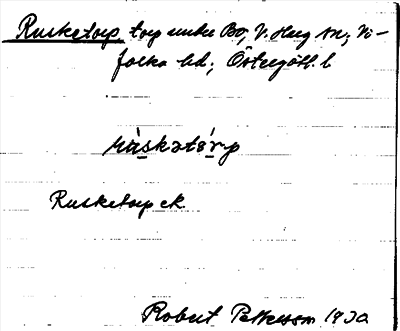 Rusketorp, torp under Bo, V. Hug sn; Vi-
folka hd; Östergötl. l
ruskətǫrp
Rusketorp ek.
Robert Pettersson 1930